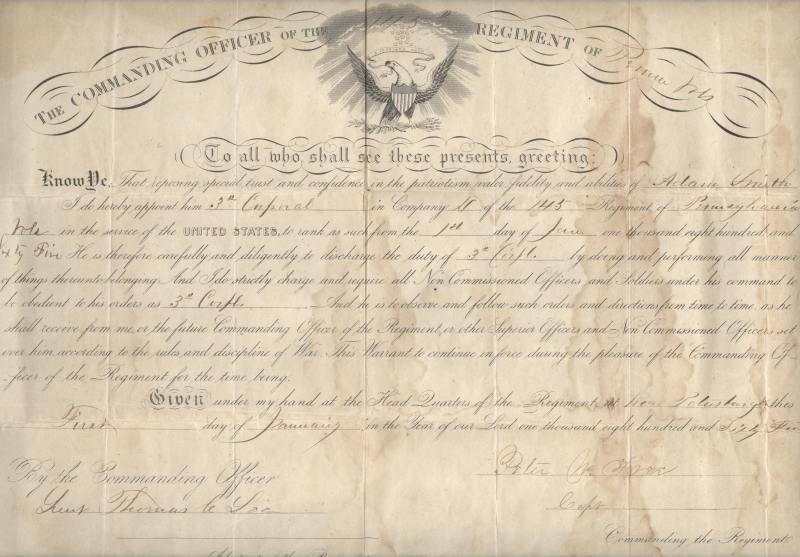 THE COMMANDING OFFICER OF THE 145th REGIMENT OF Penna Vols
To all who shall see these presents, greeting:
Know Ye, That reposing special trust and confidence in the patriotism, valor, fidelity and abilities of Adam Smith
I do hereby appoint him 3d Corporal in Company of the 145 Regiment of Pennsylvania
Vols in the service of the UNITED STATES, to rank as such from the 1st day of Jan one thousand eight hundred and
xty Five He is therefore carefully and diligently to discharge the duty of 3d Corpl. by doing and performing all manner
of things thereunto belonging. And I do strictly charge and require all Non Commissioned Officers and Soldiers under his command to
be obedient to his orders as 3d Corpl. And he is to observe and follow such orders and directions from time to time, as he
shall receive from me, or the future Commanding Officer of the Regiment, or other Superior Officers and Non Commissioned Officers set
over him, according to the rules and discipline of War. This Warrant to continue in force during the pleasure of the Commanding Of-
-ficer of the Regiment for the time being.
Given under my hand at the Head Quarters of the Regiment at near Petersburg this
First day of January in the Year of our Lord one thousand eight hundred and Sixty Five
By the Commanding Officer
Peter
Lieut Thomas C
Capt
Commanding the Regiment